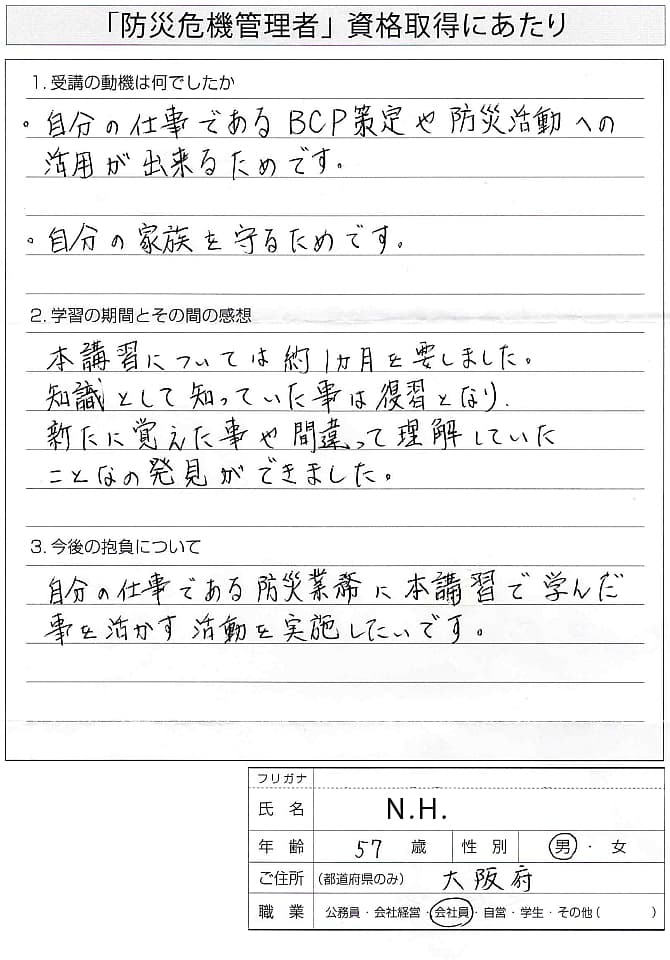 「防災危機管理者」資格取得にあたり
1. 受講の動機は何でしたか
。自分の仕事であるBCP策定や防災活動への
活用が出来るためです。
。自分の家族を守るためです。
2. 学習の期間とその間の感想
本講習については約1カ月を要しました。
知識として知っていた事は復習となり、
新たに覚えた事や間違って理解していた
ことなの発見ができました。
3. 今後の抱負について
自分の仕事である防災業務に本講習で学んだ
事を活かす活動を実施したいです。
フリガナ
氏名 N.H.
年齢 57 歳 性別 男・女
ご住所 (都道府県のみ) 大阪府
職業 公務員・会社経営・会社員・自営・学生・その他( )